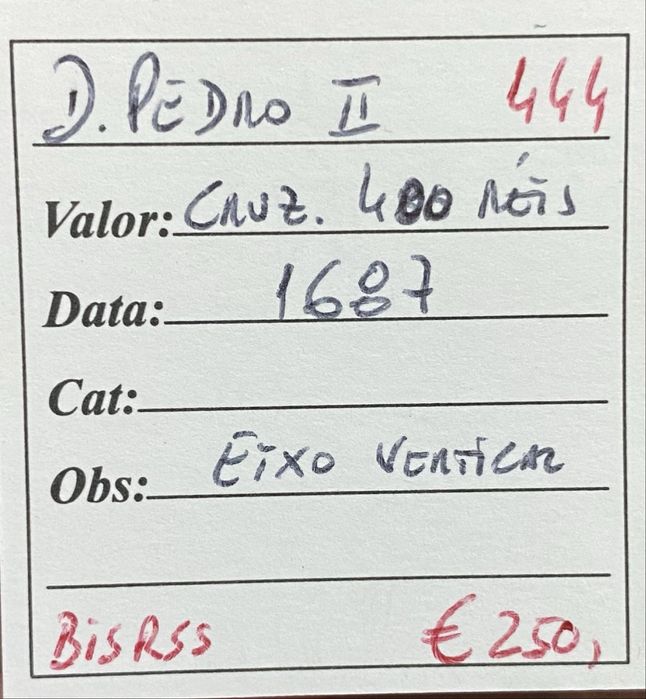 D. PEDRO II 444
Valor: CRUZ. 400 RÉIS
Data: 1687
Cat:
Obs: EIXO VERTICAL
BiSRSS € 250,